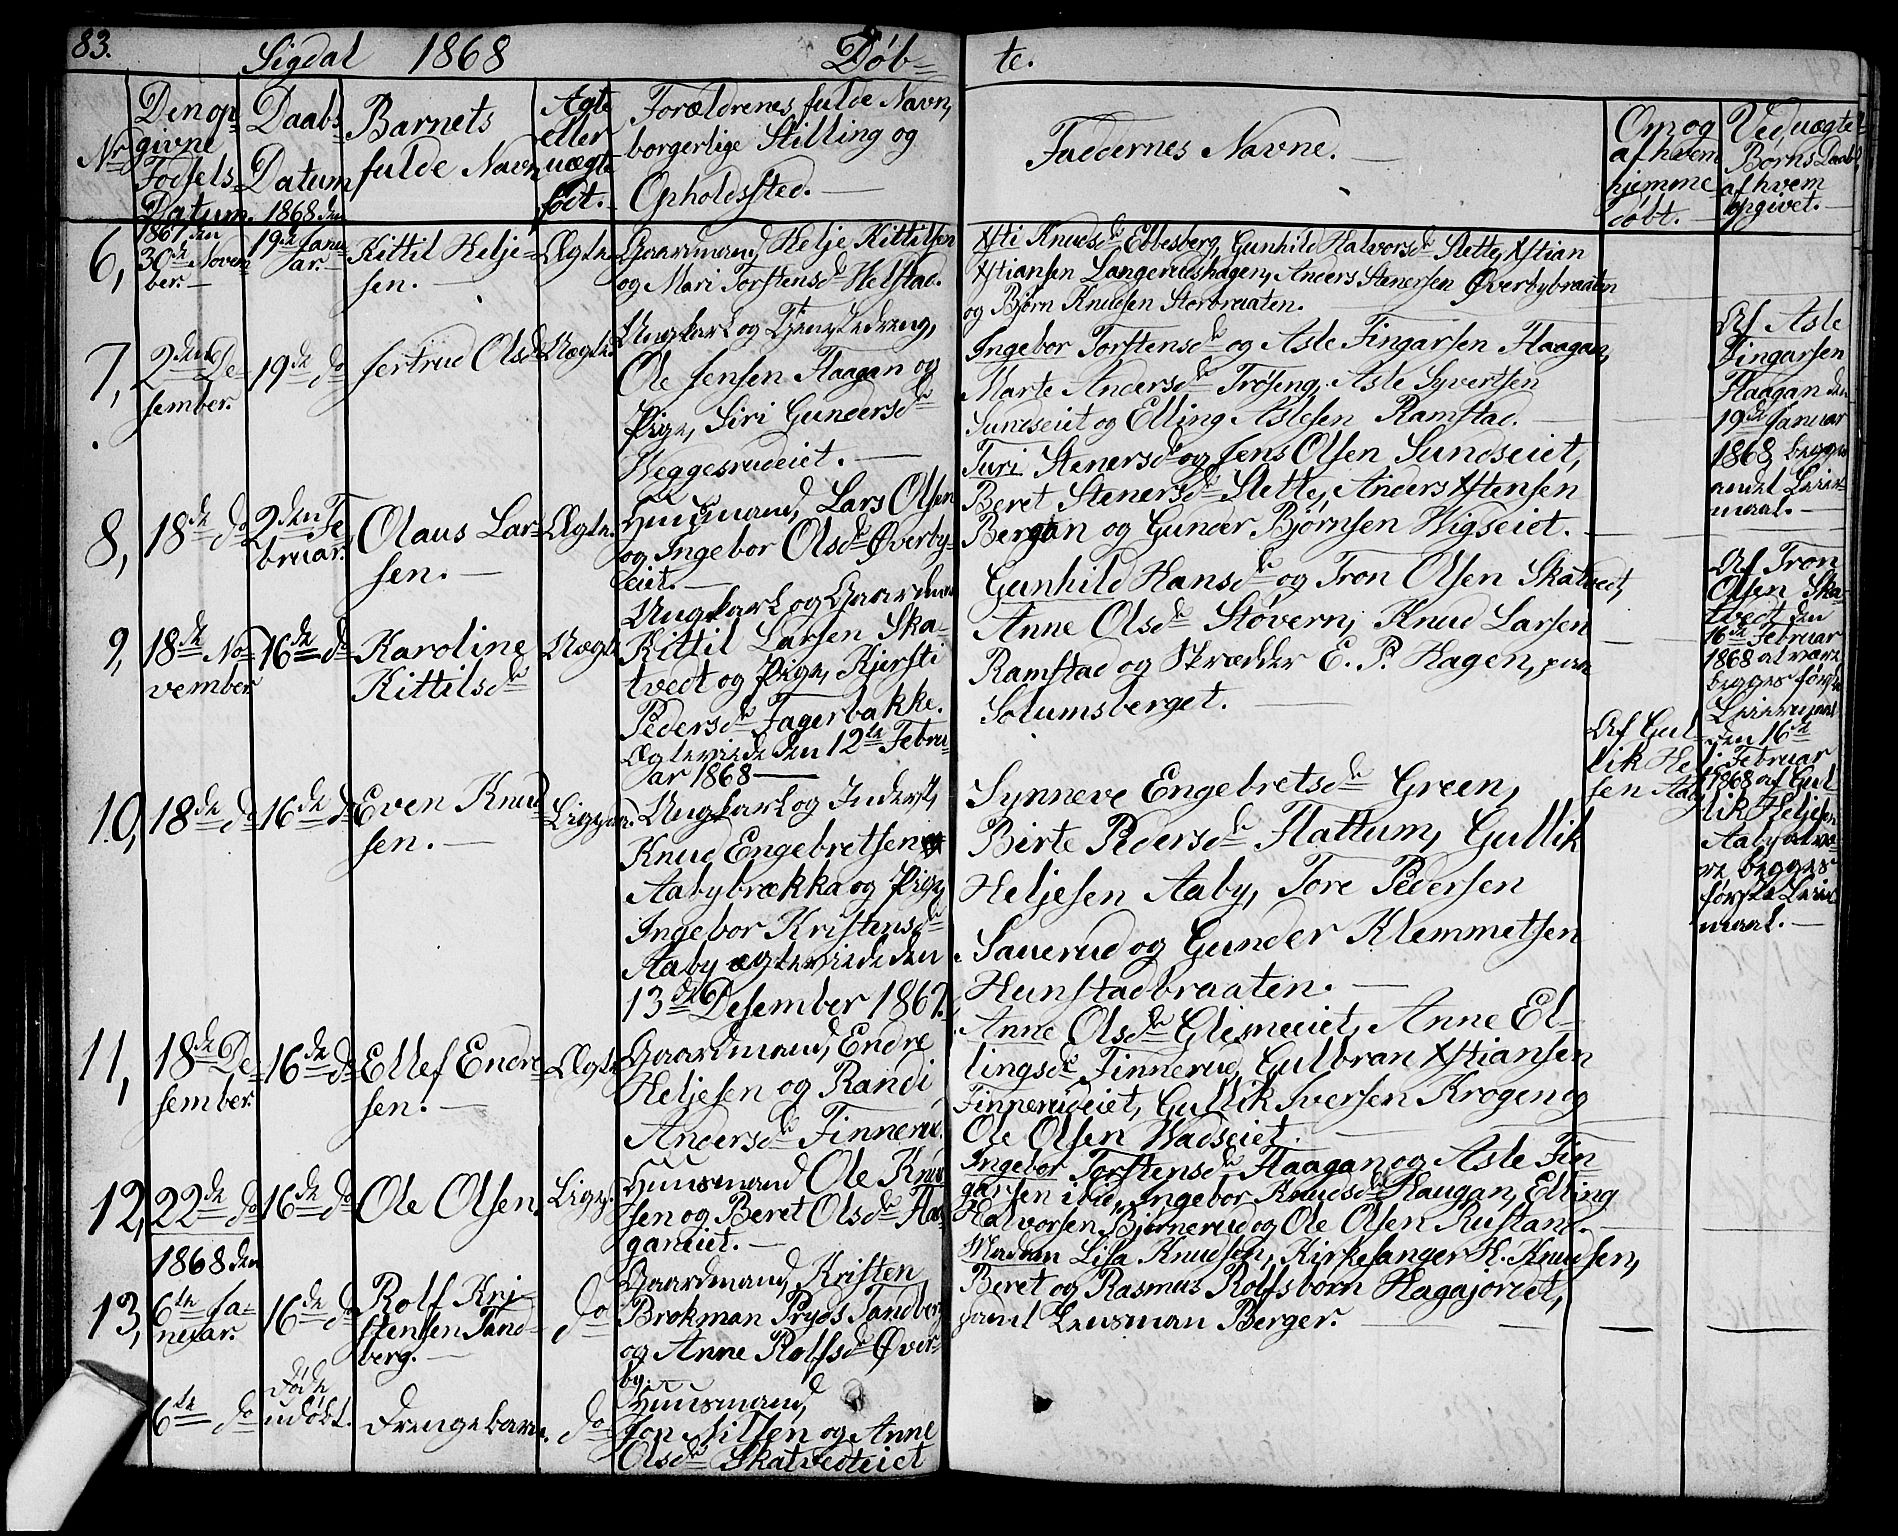 83.
Sigdal 1868 Døb-
te.
No
Den op-
givne
Fødsels-
Datum.
Daabs
Datum
1868 den
Barnets
fulde Navn
Ægte
eller
uægte
født.
Forældrenes fulde Navn,
borgerlige Stilling og
Opholdssted.
Faddernes Navne.
Om og
af hvem
hjemme
døbt.
Ved uægte
Børns Daab
af hvem
opgivet.
6,
1867 den
30de Novem-
ber.
19de Janu-
ar.
Kittil Helje-
sen.
Ægte.
Gaardmand, Helje Kittilsen
og Mari Torstensdr Helstad.
Xsti Knudsdr Ebbesberg, Gunhild Halvorsdr Slette, Xstian
Xstiansen Langerudshagen, Anders Stenersen Øverbybraaten
og Bjørn Knudsen Storbraaten.
7,
2den De-
sember.
19de do
Jertrud Olsdr
Uægte.
Ungkarl og Tjenestedreng,
Ole Jensen Flaagan og
Pige, Siri Gundersdr
Weggesrudeiet.
Ingebor Torstensdr og Asle Fingarsen Flaagan,
Marte Andersdr Trøseng, Asle Syvertsen
Sundseiet og Elling Aslesen Ramstad.
Af Asle
Fingarsen
Flaagan den
19de Januar
1868 begges
andet Leier-
maal.
8,
18de do
2den Fe-
bruar.
Olaus Lar-
sen.
Ægte.
Huusmand, Lars Olsen
og Ingebor Olsdr Øverby-
eiet.
Turi Stenersdr og Jens Olsen Sundseiet,
Beret Stenersdr Slette, Anders Xstensen
Bergan og Gunder Bjørnsen Wigseiet.
9,
18de No-
vember
16de do
Karoline
Kittilsdr
Uægte
Ungkarl og Gaardman
Kittil Larsen Ska-
tvedt og Pige, Kjersti
Pedersdr Fagerbakke.
Ægteviede den 12te Febru-
ar 1868
Gunhild Hansdr og Tron Olsen Skatvedt,
Anne Olsdr Støvern, Knud Larsen
Ramstad og Skrædder E. P. Hagen, paa
Solumsberget.
Af Tron
Olsen Ska-
tvedt den
16de Februar
1868 at være
begges første
Leiermaal
10,
18de do
16de do
Even Knud-
sen.
Ligger.
Ungkarl og Inderst,
Knud Engebretsen
Aabybrækka og Pige,
Ingebor Kristensdr
Aaby ægteviede den
13de Desember 1867.
Synneve Engebretsdr Green,
Birte Pedersdr Flattum, Gullik
Heljesen Aaby, Tore Pedersen
Sauerud og Gunder Klemmetsen
Hunstadbraaten.
Af Gul-
lik Hel-
sen Aaby
den 16de
Februar
1868 af Gul-
lik Heljesen
Aaby at væ-
re begges
første Leier-
maal.
11,
18de De-
sember.
16de do
Ellef Endre-
sen.
Ægte
Gaardmand, Endre
Heljesen og Randi
Andersdr Finnerud.
Anne Olsdr Glesneeiet, Anne El-
lingsdr Finnerud, Gulbran Xstiansen
Finnerudeiet, Gullik Iversen Krogen og
Ole Olsen Wadseiet.
12,
22de do
16de do
Ole Olsen.
Ligger.
Huusmand Ole Knud-
sen og Beret Olsdr Flaa-
ganeiet.
Ingebor Torstensdr Flaagan og Asle Fin-
garsen ibid, Ingebor Knudsdr Haugan, Elling
Halvorsen Bjørnerud og Ole Olsen Rustand.
13,
1868 den
6te Ja-
nuar.
16de do
Rolf Kri-
stensen Tand-
berg.
do
Gaardmand, Kristen
Brokman Pryds Tandberg
og Anne Rolfsdr Øver-
by.
Madam Lisa Knudsen, Kirkesanger H. Knudsen,
Beret og Rasmus Rolfsborn Hagajordet,
samt Lensman Berger.
6te do
Føde
udøbt.
Drengebarn.
do
Huusmand,
Jon Nilsen og Anne
Olsdr Skatvedteiet